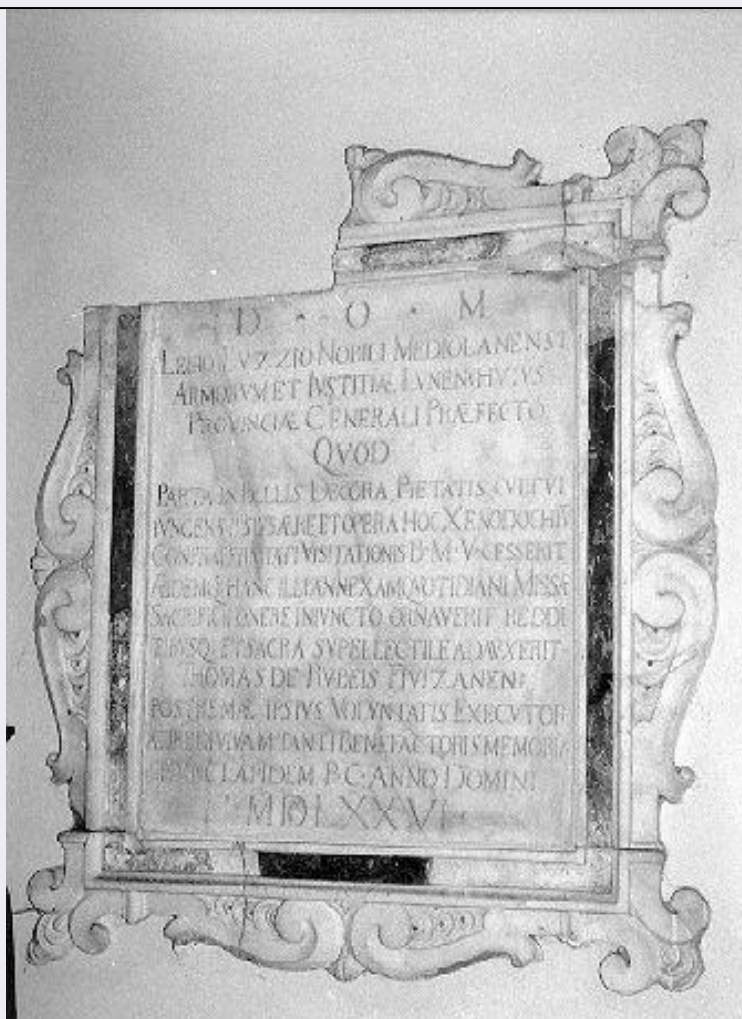 D · O · M
NOBILI MEDIOLANENSI
ARMORVM ET IVSTITIÆ LVNEN HVIVS
PROVINCIÆ GENERALI PRÆFECTO
QVOD
PARTA IN BELLIS DECORA PIETATIS CVLTVI
IVNGENS ÆRE ET OPERA HOC XENODOCHIV
VISITATIONIS B·M·V·CESSERIT
ÆDEMQ HANC ILLI ANNEXAM QVOTIDIANI MISSÆ
SACRIFICII ONERE INIVNCTO ORNAVERIT REDDI
TIBVSQ ET SACRA SVPELLECTILE ADAVXERIT
THOMAS DE RVBEIS FIVIZANEN
POSTREMÆ IPSIVS VOLVNTATIS EXECVTOR
VIVAM TANTI BENEFACTORIS MEMORIA
HVNC LAPIDEM P·C·ANNO DOMINI